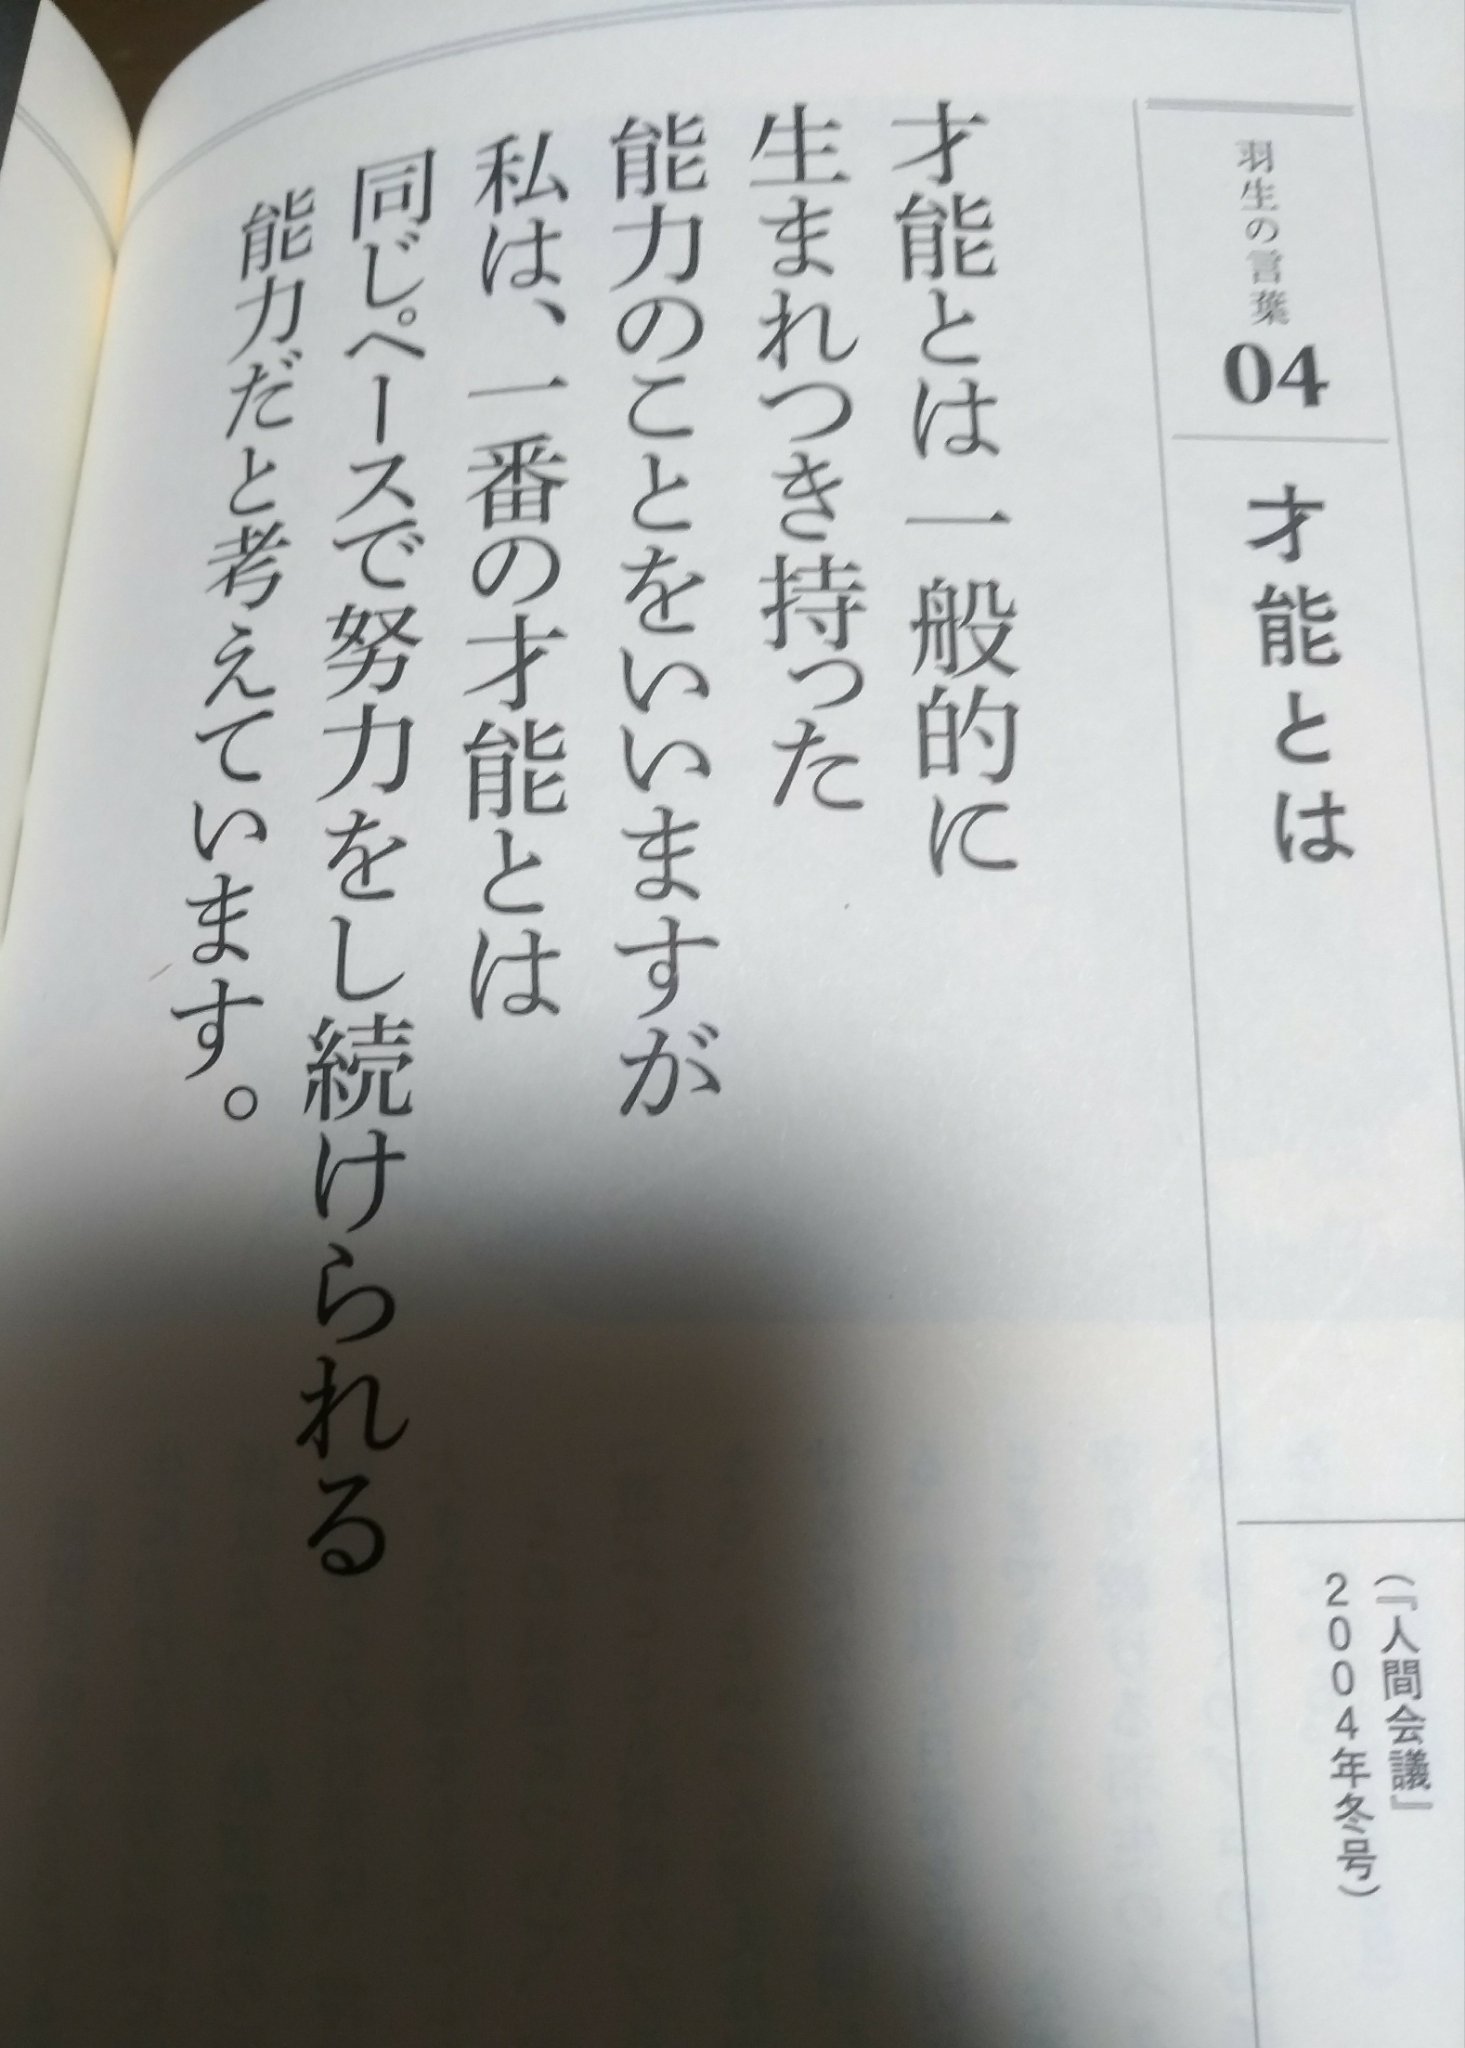 羽生の言葉
04
才能とは
(『人間会議』
2004年冬号)
才能とは一般的に
生まれつき持った
能力のことをいいますが
私は、一番の才能とは
同じペースで努力をし続けられる
能力だと考えています。